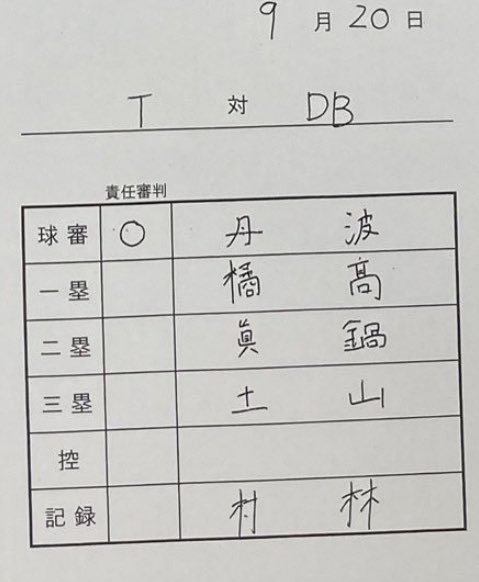 9月20日
T 対 DB
責任審判
球審 ○ 丹波
一塁 橘髙
二塁 眞鍋
三塁 土山
控
記録 村林